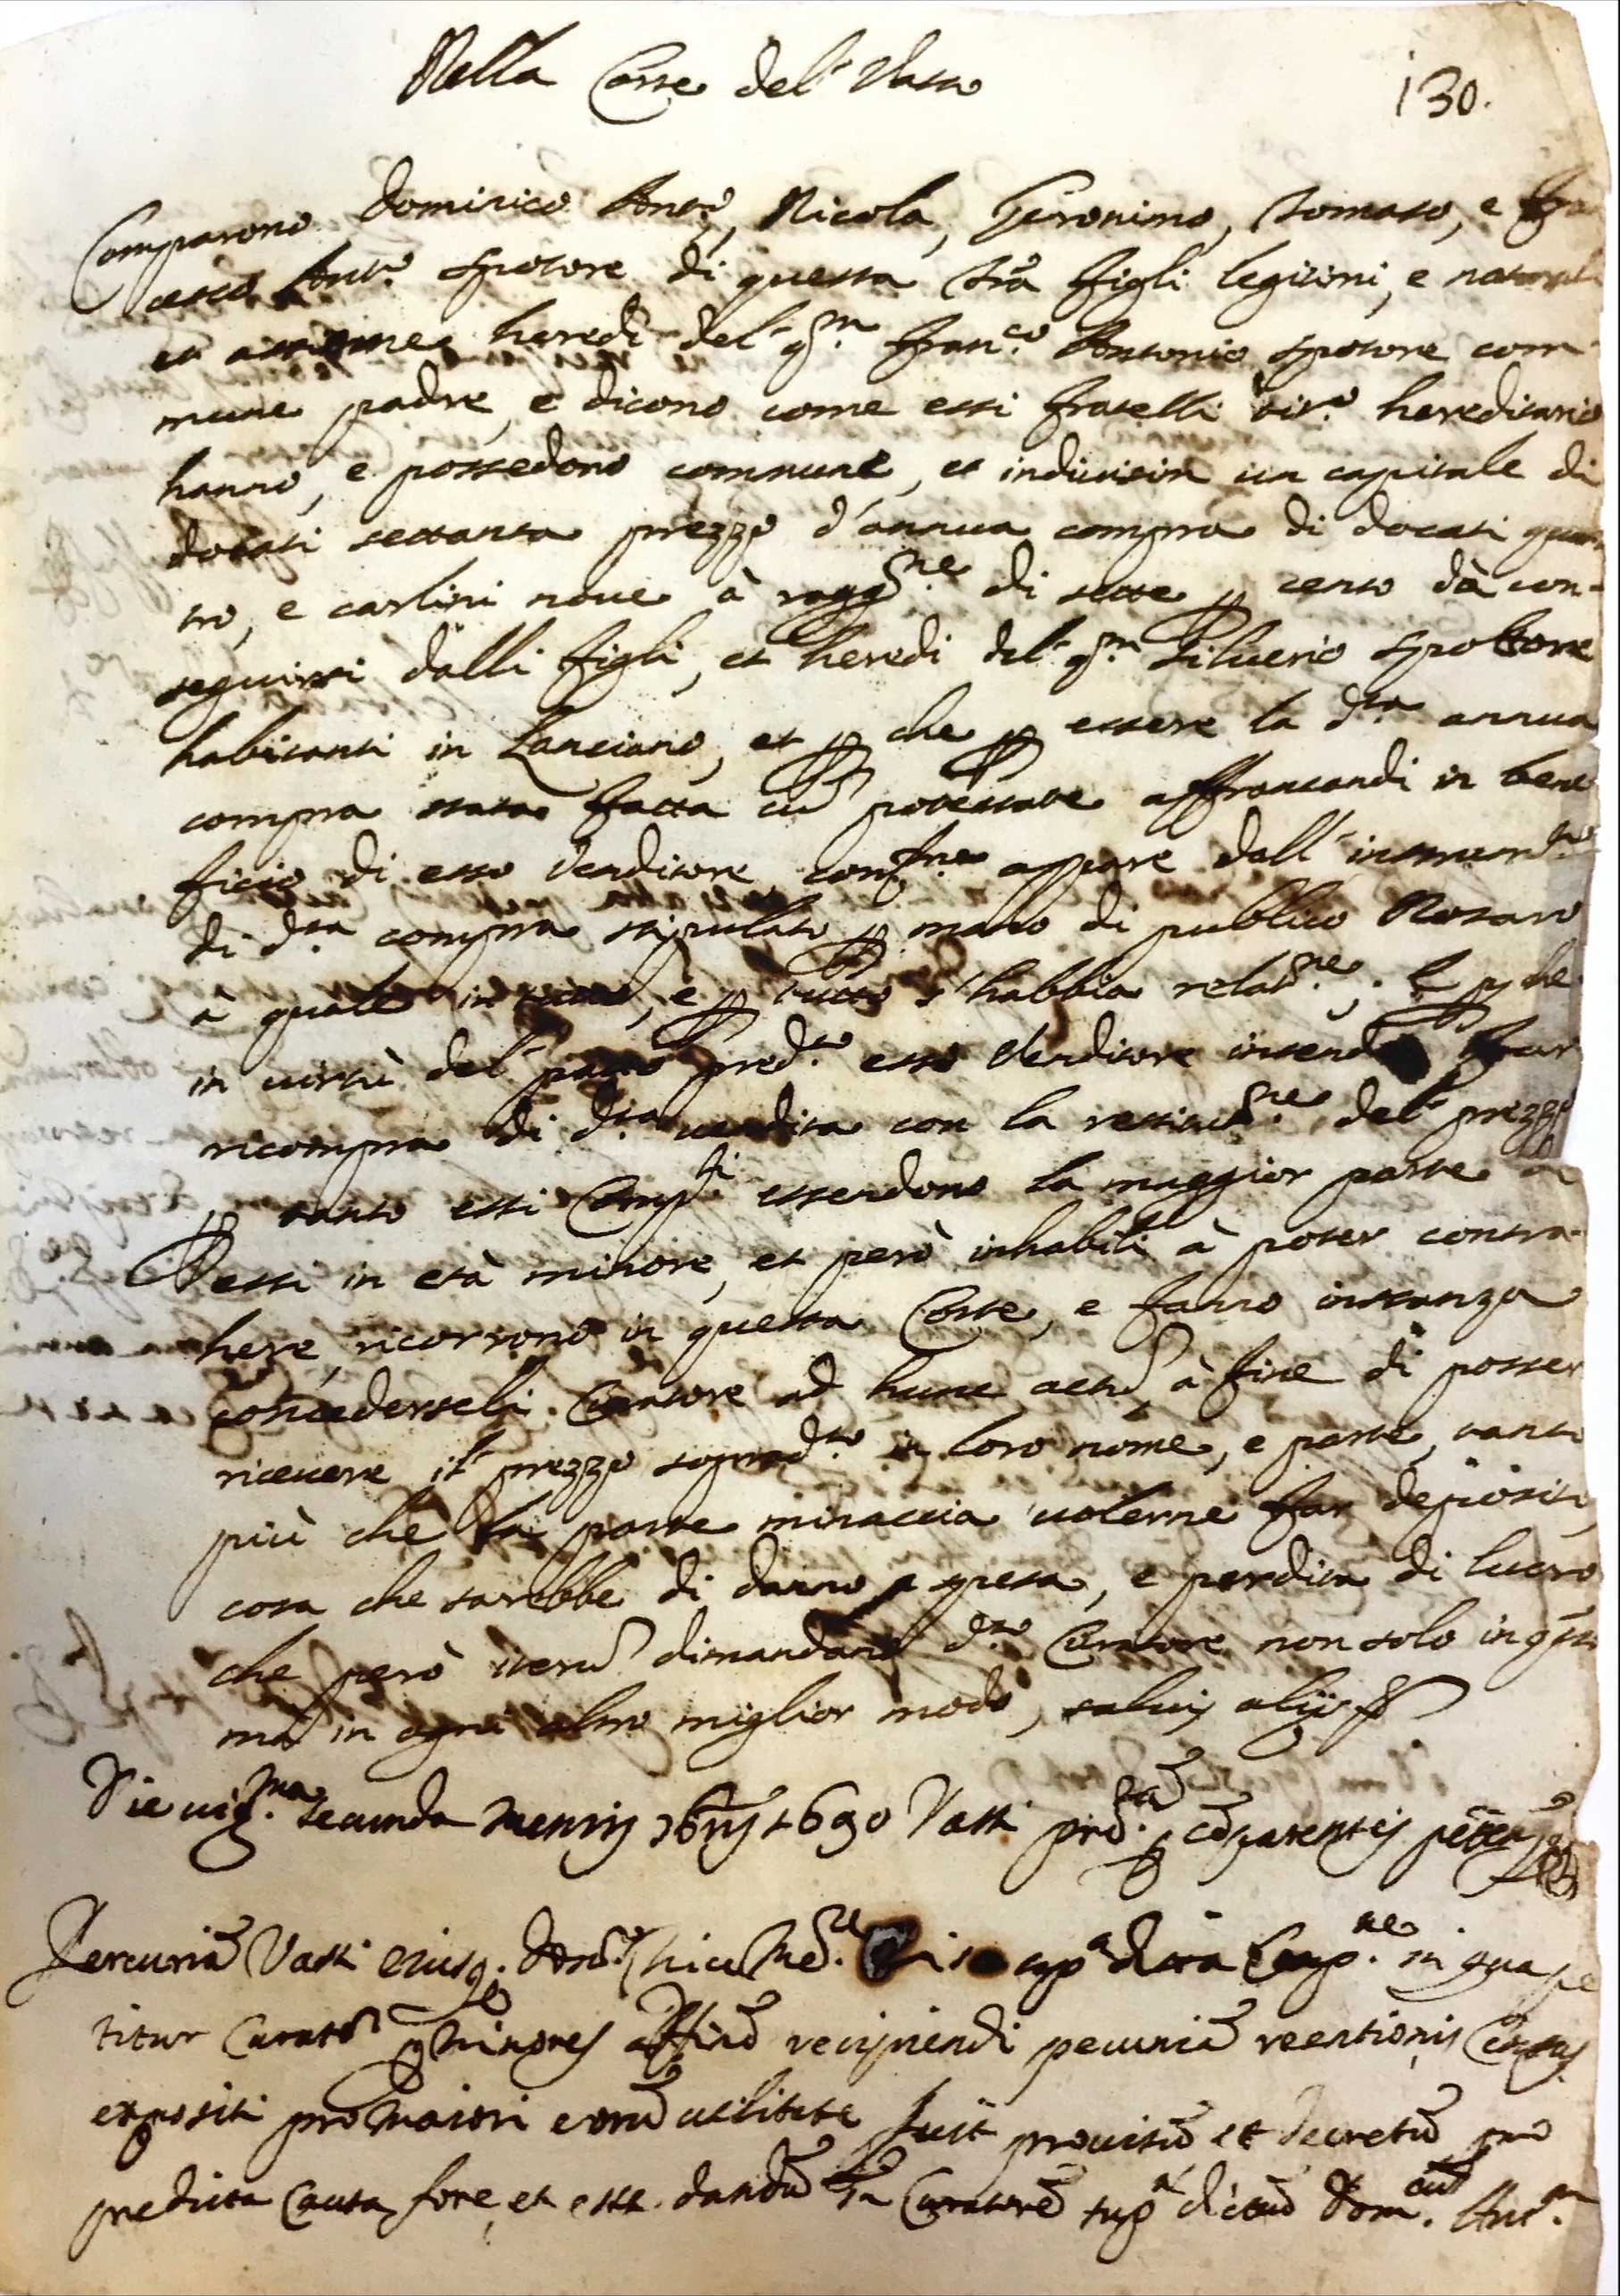 Nella Corte del Vasto
130.
Comparono Dominico Ant.º, Nicola, Geronimo, Tomaso, e Fran
cesco Ant.º Spotore di questa Trà figli legitimi, e naturali
et heredi del qm. Fran.co Antonio Spotore com
mune padre, e dicono come essi fratelli tit.º hereditario
hanno, e possedono commune, et indivisim un capitale di
docati settanta prezzo d'annua compra di docati quat
tro, e carlini nove à ragg.ne di sette p cento dà con-
seguirsi dalli figli, et heredi del qm. Silverio Spottore
habitanti in Lanciano, et p che p essere la d.ta annua
compra stata fatta cũ potestate affrancandi in bene
ficio di esso Venditore, conf.me appare dall' instrum.to
di d.ta compra stipulato p mano di publico Notaro
à quale, e p tutto s' habbia relat.ne; E p che
in virtù del patto pred.to esso Venditore intende far
ricompra di d.ta vendita con la restitut.ne del prezzo
p tanto essi Comp.ti essendono la maggior parte di
essi in età minore, et però inhabili à poter contra-
here, ricorrono in questa Corte, e fanno instanza
concederseli Curatore ad hunc actũ, à fine di posser
ricevere il prezzo soprad.to in loro nome, e parte, tanto
più che la parte minaccia volerne far deposito,
cosa che sarebbe di danno, e spesa, e perdita di lucro
che però iterũ dimandano d.to Curatore non solo in q.sto
mà in ogni altro miglior modo, salvis alijs
Die vig.ma secunda mensis Xbris 1690 Vasti prd.ta cõparentes
Per curiã Vasti eiusq. visa sup.a dicta Comp.ne in qua pe
titur Curator p minores affinẽ recipiendi pecuniã reentionis
expositi pro maiori eorũ utilitate fuit provisũ et decretũ pro
predicta causa fore, et esse dandũ in Curatorẽ sup.a dictũ Dom.cum Ant.m